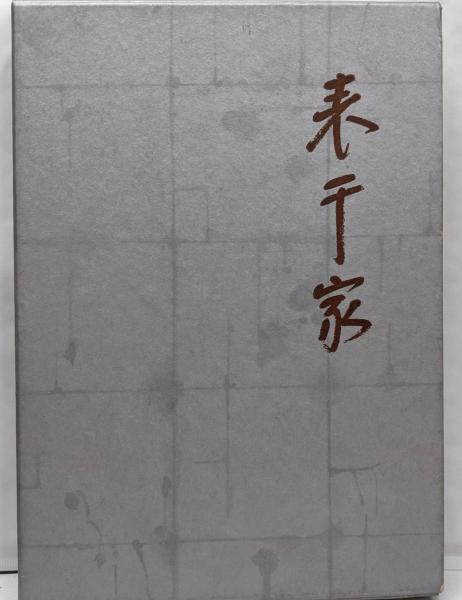 表千家